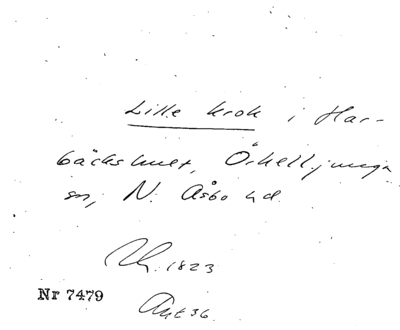 Lille krok i Har-
bäckshult, Örkelljunga
sn, N. Åsbo hd.
Uh. 1823
Nr 7479
Akt 36.